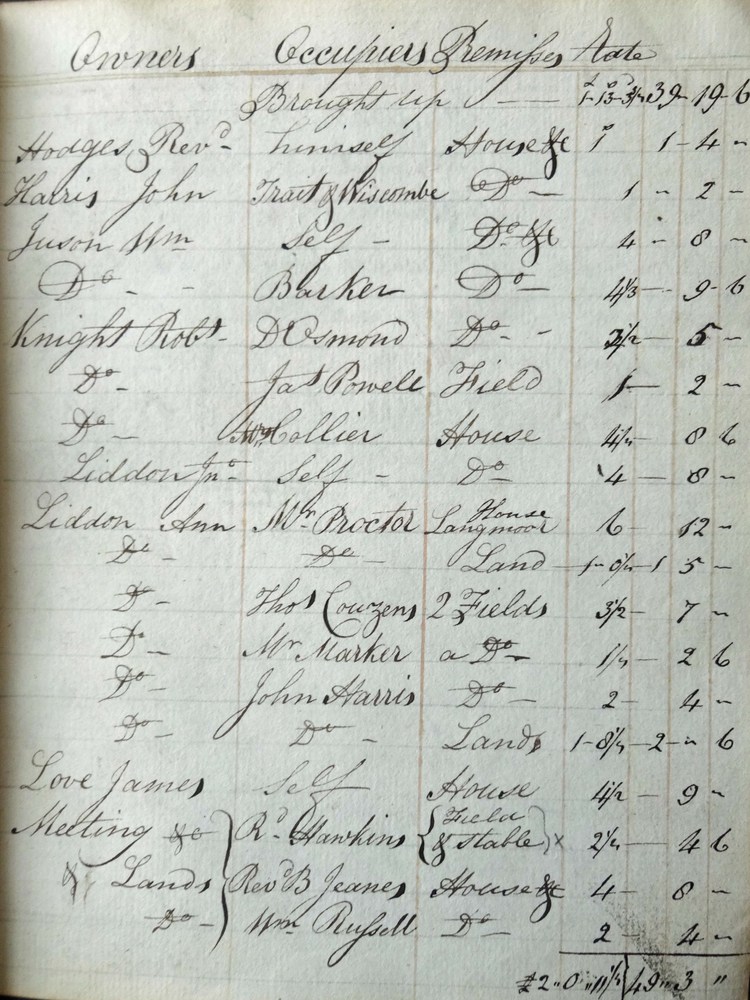 Owners Occupiers Premises Rate
Brought up — — 1-13-3½ 39-19-6
Hodges Revd- himself House &c 1 1-4-"
Harris John Trait & Wiscombe Do — 1 - 2 -
Juson Wm Self - Do- &c 4 - 8 -
Do - - Barker Do - 4½ — 9-6
Knight Robt- D Osmond Do - - 2½ - 5 -
Do - Jas Powell Field 1 — 2 -
Do - Collier House 4¼ - 8 6
Liddon Jno- Self - Do - 4 - 8 -
Liddon Ann Mr Proctor House Langmoor 6 - 12 -
Do - Do - Land 1-0½-1 5 -
Do - Thos Cowzens 2 Fields 3½ - 7 -
Do - Mr Marker a Do - 1¼ - 2 6
Do - John Harris Do - 2 - 4 -
Do - Do - Lands 1-8¼-2-"-6
Love James Self House 4½ - 9 -
Meeting &c Rd- Hawkins Field & Stable x 2¼ - 4 6
Lands Revd B Jeanes House &c 4 - 8 -
Do - Wm Russell Do - 2 4 -
£2"0"11½ 49"3"